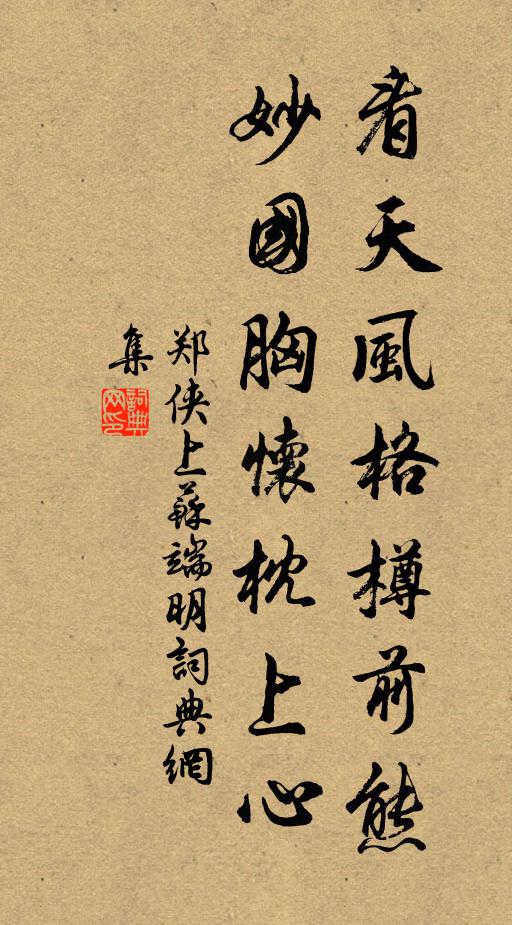 看天風格樽前態
妙國胸懷枕上心
郑侠上蘇端明詞典網
集
詞典
网印